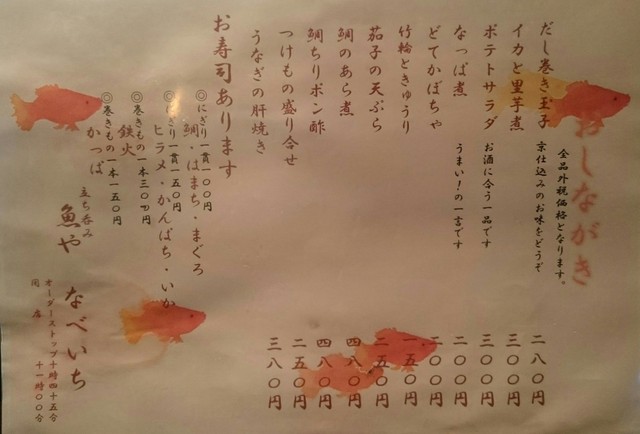 おしながき
全品外税価格となります。
だし巻き玉子 京仕込みのお味をどうぞ 二八〇円
イカと里芋煮 三〇〇円
ポテトサラダ お酒に合う一品です 三〇〇円
なっぱ煮 うまい!の一言です 二〇〇円
どてかぼちゃ 二〇〇円
竹輪ときゅうり 一五〇円
茄子の天ぷら 二五〇円
鯛のあら煮 四八〇円
鯛ちりポン酢 四八〇円
つけもの盛り合せ 二五〇円
うなぎの肝焼き 三八〇円
お寿司あります
◎にぎり一貫一〇〇円
鯛・はまち・まぐろ
◎にぎり一貫一五〇円
ヒラメ・かんぱち・いか
◎巻きもの一本三〇〇円
鉄火
◎巻きもの一本一五〇円
かっぱ
立ち呑み
魚や なべいち
オーダーストップ十時四十五分
閉店 十一時〇〇分